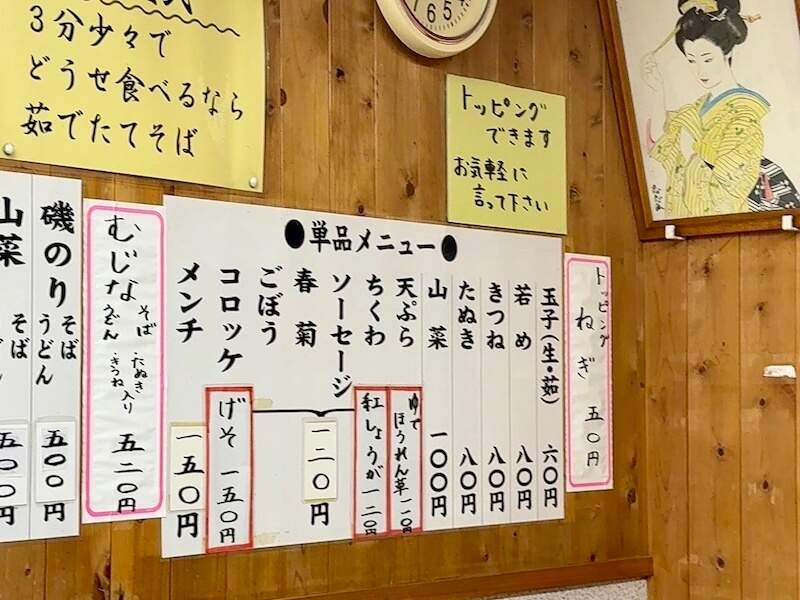 3分少々で
どうせ食べるなら
茹でたてそば
トッピング
できます
お気軽に
言って下さい
●単品メニュー●
玉子(生・茹) 六〇円
若め 八〇円
きつね 八〇円
たぬき 八〇円
山菜 一〇〇円
天ぷら
ちくわ
ソーセージ
春菊
ごぼう
一二〇円
コロッケ
メンチ 一五〇円
ゆで
ほうれん草 一二〇円
紅しょうが 一二〇円
げそ 一五〇円
トッピング
ねぎ 五〇円
むじな そば うどん
・たぬき ・きつね 入り
五二〇円
磯のり そば うどん 五〇〇円
山菜 そば 五〇〇円
7 6 5